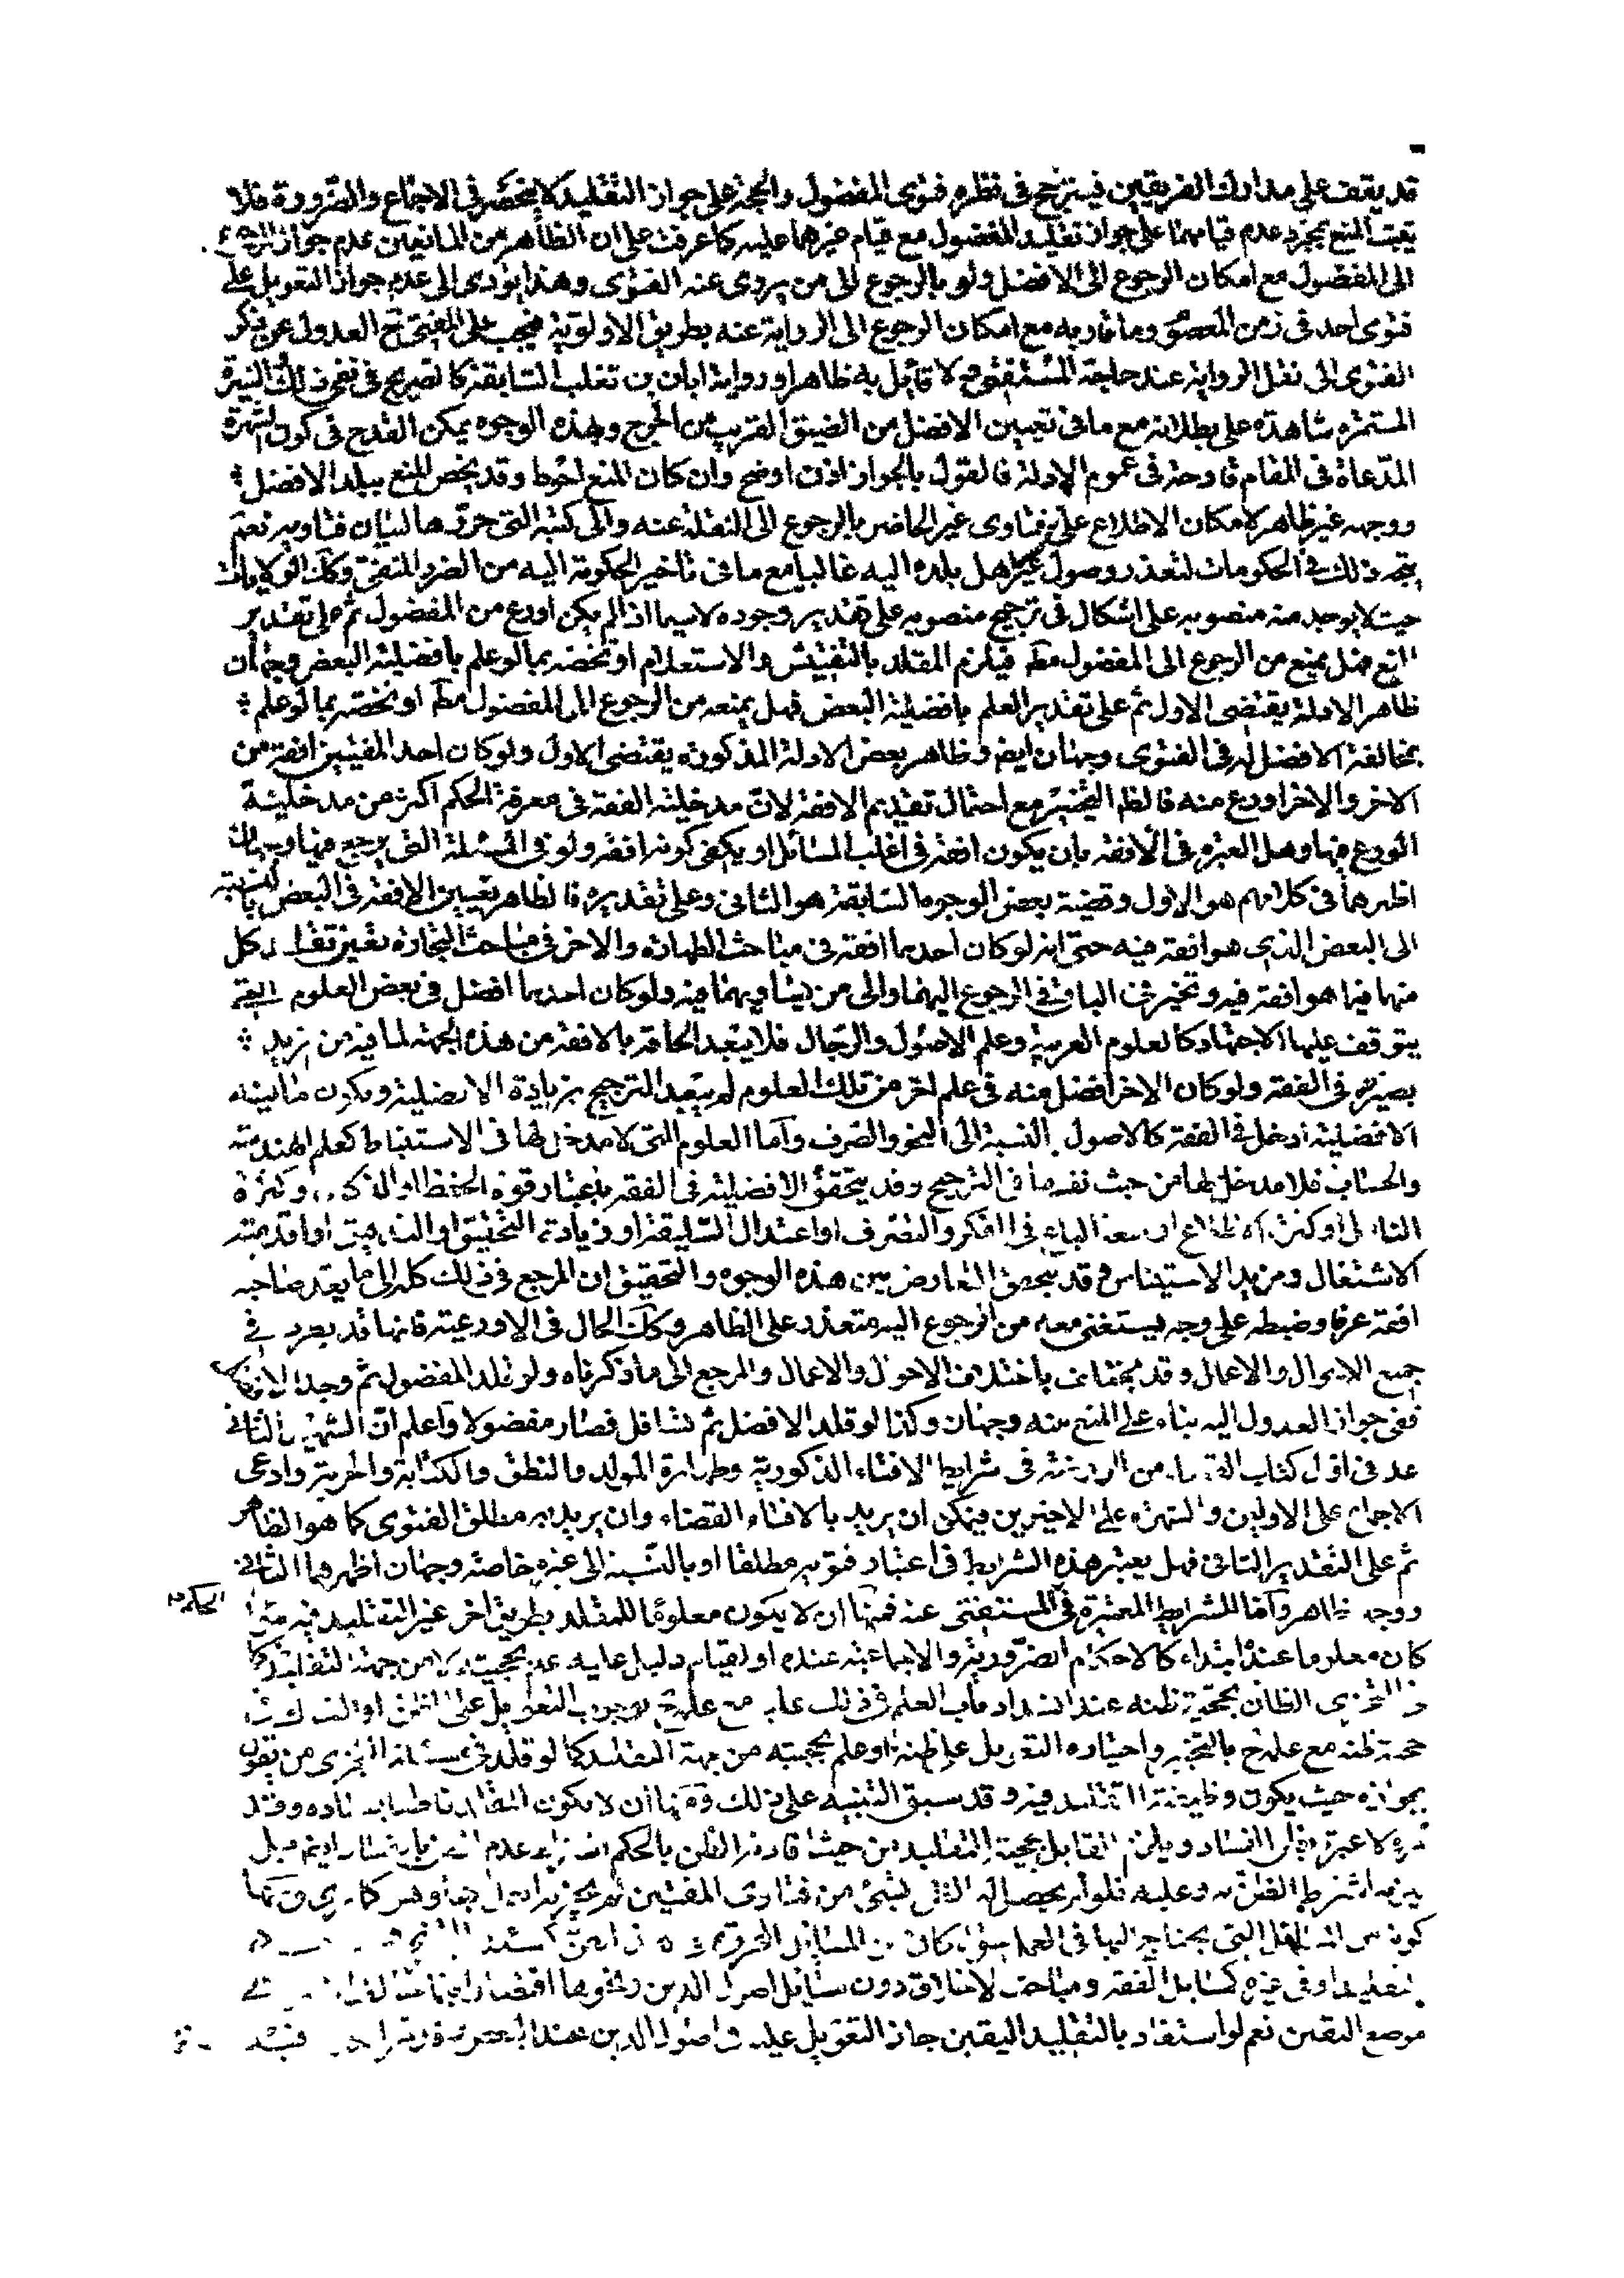 قد يقف على مدارك الفريقين فيترجح فى نظره فتوى المفضول والحجة على جواز التقليد لا ينحصر فى الاجماع والضرورة فلا
يثبت المنع بمجرد عدم قيامهما على جواز تقليد المفضول مع قيام غيرهما عليه كما عرفت على ان الظاهر من المانعين عدم جواز الرجوع
الى المفضول مع امكان الرجوع الى الافضل ولو بالرجوع الى من يروى عنه الفتوى وهذا يؤدى الى عدم جواز التعويل على
فتوى احد فى زمن المعصوم وما قاربه مع امكان الرجوع الى الرواية عنه بطريق الاولوية فيجب على المفتى ح العدول عن ذكر
الفتوى الى نقل الرواية عند حاجة المستفتى ح لا قائل به ظاهرا ورواية ابان بن تغلب السابقة كالصريح فى نفى ذلك والسيرة
المستمرة شاهدة على بطلانه مع ما فى تعيين الافضل من الضيق القريب من الحرج وبهذه الوجوه يمكن القدح فى كون الشهرة
المدعاة فى المقام قادحة فى عموم الادلة فالقول بالجواز اذن اوضح وان كان المنع احوط وقد يخص المنع ببلد الافضل
ووجهه غير ظاهر لامكان الاطلاع على فتاوى غير الحاضر بالرجوع الى النقلة عنه والى كتبه التى حررها لبيان فتاويه نعم
يتجه ذلك فى الحكومات لتعذر وصول غير اهل بلده اليه غالبا مع ما فى تاخير الحكومة اليه من الضرر المنفى وكك الولايات
حيث لا يوجد منه منصوبه على اشكال فى ترجيح منصوبه على تقدير وجوده لا سيما اذا لم يكن اورع من المفضول ثم على تقدير
المنع فهل يمنع من الرجوع الى المفضول مط فيلزم المقلد بالتفتيش والاستعلام او يختص بما لو علم بافضلية البعض وجهان
ظاهر الادلة يقتضى الاول ثم على تقدير العلم بافضلية البعض فهل يمنعه من الرجوع الى المفضول مط او يختص بما لو علم
بمخالفة الافضل له فى الفتوى وجهان ايض وظاهر بعض الادلة المذكورة يقتضى الاول ولو كان احد المفتيين افقه من
الاخر والاخر اورع منه فالظ التخيير مع احتمال تقديم الافقه لان مدخلية الفقه فى معرفة الحكم اكثر من مدخلية
الورع فيها وهل العبرة فى الافقه بان يكون افقه فى اغلب المسائل او يكفى كونه افقه ولو فى المسئلة التى يرجع فيها وجهان
اظهرهما فى كلامهم هو الاول وقضية بعض الوجوه السابقة هو الثانى وعلى تقديره فالظاهر تعيين الافقه فى البعض بالنسبة
الى البعض الذى هو افقه فيه حتى انه لو كان احدهما افقه فى مباحث الطهارة والاخر فى مباحث التجارة تعين تقليد كل
منهما فيما هو افقه فيه وتخير فى الباقى فى الرجوع اليهما والى من يساويهما فيه ولو كان احدهما افضل فى بعض العلوم التى
يتوقف عليها الاجتهاد كالعلوم العربية وعلم الاصول والرجال فلا يبعد الحاقه بالافقه من هذه الجهة لما فيه من مزيد
بصيرة فى الفقه ولو كان الاخر افضل منه فى علم اخر من تلك العلوم لم يبعد الترجيح بزيادة الافضلية وبكون ما فيه
الافضلية ادخل فى الفقه كالاصول بالنسبة الى النحو والصرف واما العلوم التى لا مدخل لها فى الاستنباط كعلم الهندسة
والحساب فلا مدخل لها من حيث نفسها فى الترجيح وقد يتحقق الافضلية فى الفقه باعتبار قوة الحفظ او الذكاء وكثرة
التامل او كثرة الاطلاع او سعة الباع فى الفكر والتصرف او اعتدال السليقة او زيادة التحقيق والتدقيق او اقدمية
الاشتغال ومزيد الاستيناس وقد يتحقق التعارض بين هذه الوجوه والتحقيق ان المرجع فى ذلك كله الى ما يعد صاحبه
افقه عرفا وضبطه على وجه يستغنى معه من الرجوع اليه متعذر على الظاهر وكك الحال فى الاورعية فانها قد يعرف فى
جميع الاحوال والاعمال وقد يختلف باختلاف الاحوال والاعمال والمرجع الى ما ذكرناه ولو قلد المفضول ثم وجد الافضل
ففى جواز العدول اليه بناء على المنع منه وجهان وكذا لو قلد الافضل ثم تسافل فصار مفضولا واعلم ان الشهيد الثانى
عد فى اول كتاب القضاء من الروضة فى شرايط الافتاء الذكورية وطهارة المولد والنطق والكتابة والحرية وادعى
الاجماع على الاولين والشهرة على الاخيرين فيمكن ان يريد بالافتاء القضاء وان يريد به مطلق الفتوى كما هو الظاهر
ثم على التقدير الثانى فهل يعتبر هذه الشرايط فى اعتبار فتويه مطلقا او بالنسبة الى غيره خاصة وجهان اظهرهما الثانى
ووجهه ظاهر واما الشرايط المعتبرة فى المستفتى عنه فمنها ان لا يكون معلوما للمقلد بطريق اخر غير التقليد فيه
الحكم
كان معلوما عنده ابتداء كالاحكام الضرورية والاجماعية عنده او لقيام دليل عليه علم بحجيته لا من جهة التقليد كما
فى المتجزى الظان بحجية ظنه عند انسداد باب العلم فى ذلك عليه مع علمه ح بوجوب التعويل على الظن او الشاك فى
حجية ظنه مع علمه ح بالتخيير واختياره التعويل على ظنه او علم بحجيته من جهة التقليد كما لو قلد فى مسئلة التجزى من يقول
بجوازه حيث يكون وظيفته التقليد فيه وقد سبق التنبيه على ذلك ومنها ان لا يكون المقلد قاطعا بفساده
لا عبرة الفساد ويلزم القايل بحجية التقليد من حيث افادته الظن بالحكم
اشترط الظن به وعليه فلو لم يحصل له الظن بشئ من فتاوى المفتيين
كونه من المسائل التى يحتاج اليها فى العمل سواء كان من المسائل
تقليد او فى غيره كمسايل الفقه ومباحث الاخلاق دون مسايل اصول الدين ونحوها اقتصارا
موضع اليقين نعم لو استفاد بالتقليد اليقين جاز التعويل عليه فى اصول الدين عند